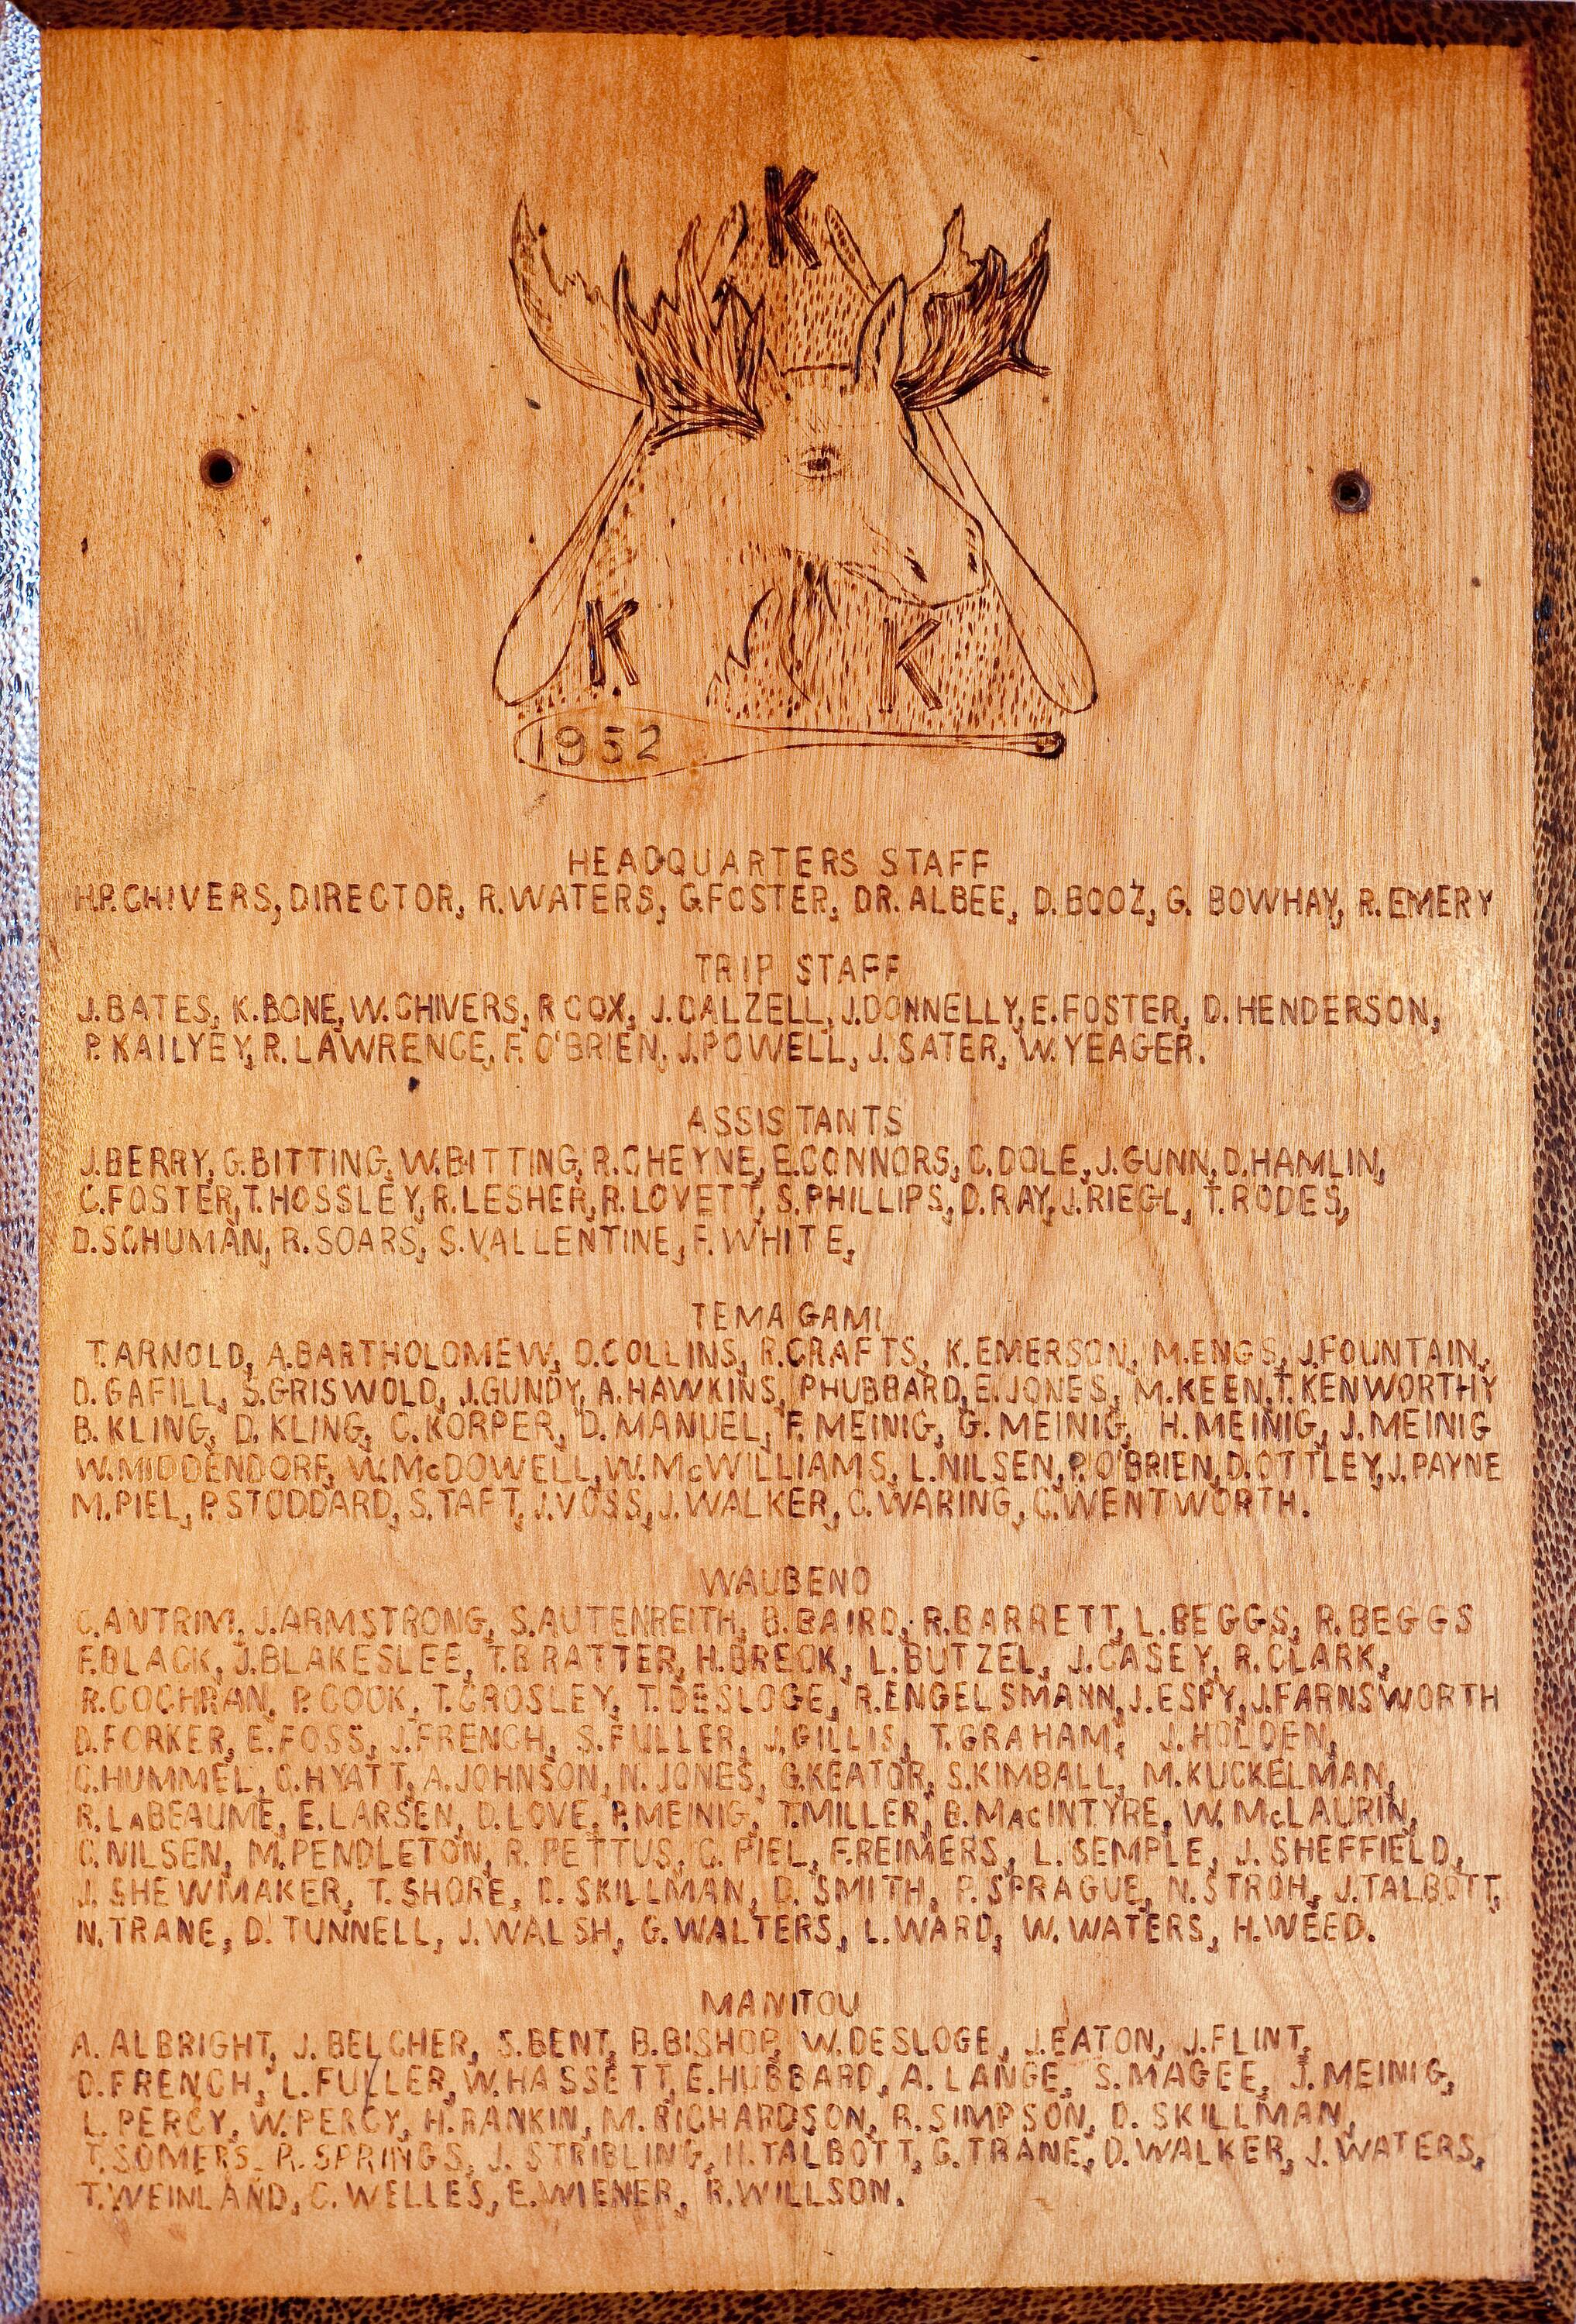 K
K K
1952
HEADQUARTERS STAFF
H.P. CHIVERS, DIRECTOR, R. WATERS, G. FOSTER, DR. ALBEE, D. BOOZ, G. BOWHAY, R. EMERY
TRIP STAFF
J. BATES, K. BONE, W. CHIVERS, R COX, J. DALZELL, J. DONNELLY, E. FOSTER, D. HENDERSON,
P. KAILYEY, R. LAWRENCE, F. O'BRIEN, J. POWELL, J. SATER, W. YEAGER.
ASSISTANTS
J. BERRY, G. BITTING, W. BITTING, R. CHEYNE, E. CONNORS, C. DOLE, J. GUNN, D. HAMLIN,
C. FOSTER, T. HOSSLEY, R. LESHER, R. LOVETT, S. PHILLIPS, D. RAY, J. RIEGL, T. RODES,
D. SCHUMAN, R. SOARS, S. VALLENTINE, F. WHITE,
TEMAGAMI
T. ARNOLD, A. BARTHOLOMEW, D. COLLINS, R. CRAFTS, K. EMERSON, M. ENGS, J. FOUNTAIN,
D. GAFILL, S. GRISWOLD, J. GUNDY, A. HAWKINS, P HUBBARD, E. JONES, M. KEEN, T. KENWORTHY
B. KLING, D. KLING, C. KORPER, D. MANUEL, F. MEINIG, G. MEINIG, H. MEINIG, J. MEINIG
W. MIDDENDORF, W. McDOWELL, W. McWILLIAMS, L. NILSEN, P. O'BRIEN, D. OTTLEY, J. PAYNE
M. PIEL, P. STODDARD, S. TAFT, J. VOSS, J. WALKER, C. WARING, C. WENTWORTH.
WAUBENO
C. ANTRIM, J. ARMSTRONG, S. AUTENREITH, B. BAIRD, R. BARRETT, L. BEGGS, R. BEGGS
F. BLACK, J. BLAKESLEE, T. BRATTER, H. BRECK, L. BUTZEL, J. CASEY, R. CLARK,
R. COCHRAN, P. COOK, T. CROSLEY, T. DESLOGE, R. ENGELSMANN, J. ESPY, J. FARNSWORTH
D. FORKER, E. FOSS, J. FRENCH, S. FULLER, J. GILLIS, T. GRAHAM, J. HOLDEN,
C. HUMMEL, C. HYATT, A. JOHNSON, N. JONES, G. KEATOR, S. KIMBALL, M. KUCKELMAN,
R. LaBEAUME, E. LARSEN, D. LOVE, P. MEINIG, T. MILLER, B. MacINTYRE, W. McLAURIN,
C. NILSEN, M. PENDLETON, R. PETTUS, C. PIEL, F. REIMERS, L. SEMPLE, J. SHEFFIELD,
J. SHEWMAKER, T. SHORE, D. SKILLMAN, D. SMITH, P. SPRAGUE, N. STROH, J. TALBOTT,
N. TRANE, D. TUNNELL, J. WALSH, G. WALTERS, L. WARD, W. WATERS, H. WEED.
MANITOU
A. ALBRIGHT, J. BELCHER, S. BENT, B. BISHOP, W. DESLOGE, J. EATON, J. FLINT,
D. FRENCH, L. FULLER, W. HASSETT, E. HUBBARD, A. LANGE, S. MAGEE, J. MEINIG,
L. PERCY, W. PERCY, H. RANKIN, M. RICHARDSON, R. SIMPSON, D. SKILLMAN,
T. SOMERS, R. SPRINGS, J. STRIBLING, H. TALBOTT, G. TRANE, D. WALKER, J. WATERS,
T. WEINLAND, C. WELLES, E. WIENER, R. WILLSON.